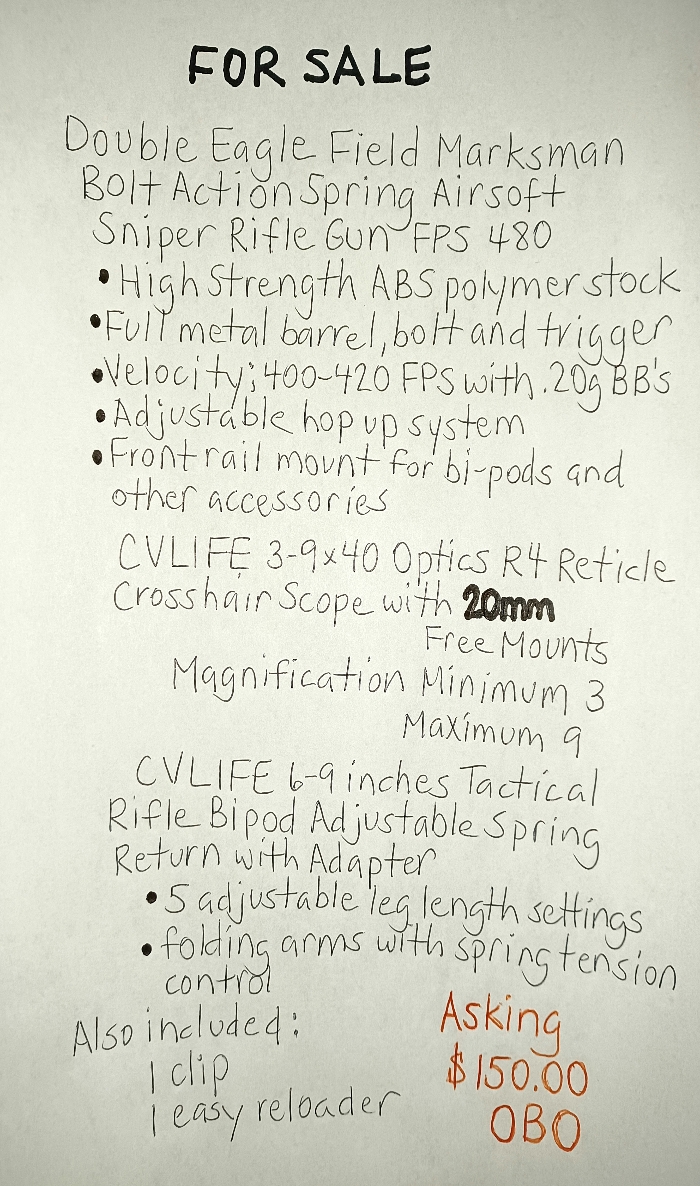 FOR SALE
Double Eagle Field Marksman
Bolt Action Spring Airsoft
Sniper Rifle Gun FPS 480
• High Strength ABS polymer stock
• Full metal barrel, bolt and trigger
• Velocity; 400-420 FPS with .20g BB's
• Adjustable hop up system
• Front rail mount for bi-pods and
other accessories
CVLIFE 3-9x40 Optics R4 Reticle
Crosshair Scope with 20mm
Free Mounts
Magnification Minimum 3
Maximum 9
CVLIFE 6-9 inches Tactical
Rifle Bipod Adjustable Spring
Return with Adapter
• 5 adjustable leg length settings
• folding arms with spring tension
control
Also included:
1 clip
1 easy reloader
Asking
$150.00
OBO